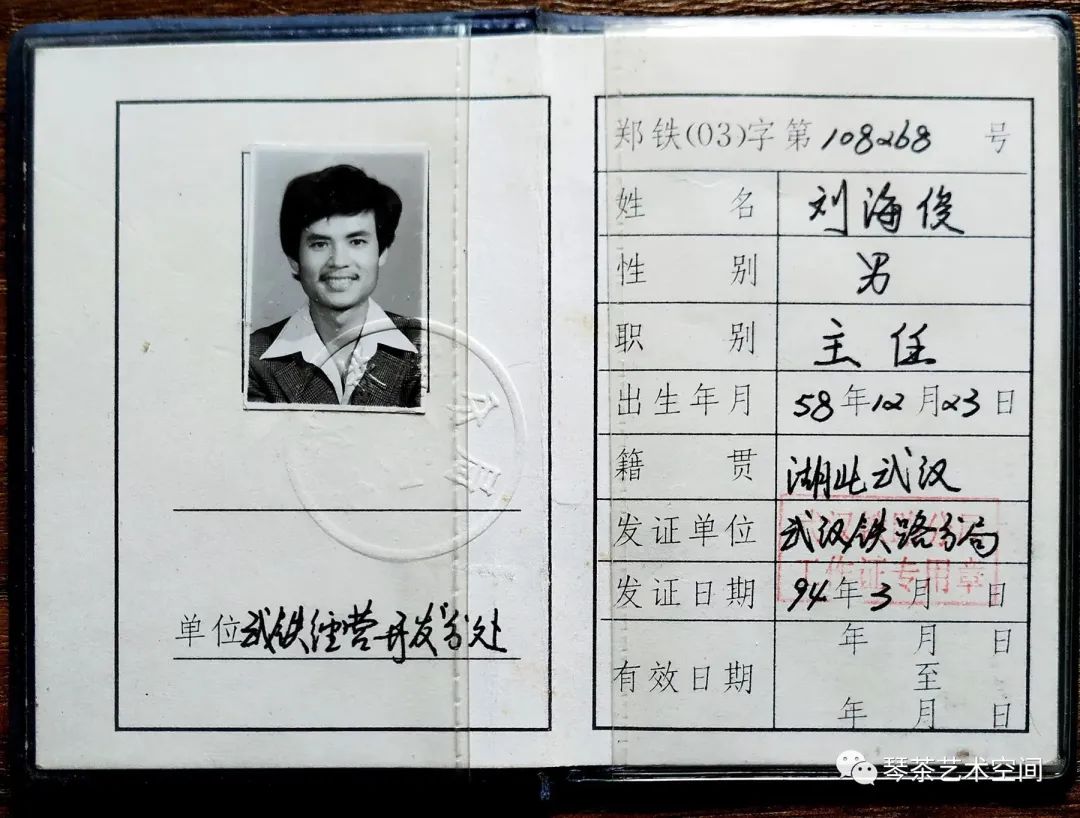 单位武铁经营开发分处
郑铁(03)字第108268号
姓名 刘海俊
性别 男
职别 主任
出生年月 58年12月23日
籍贯 湖北武汉
发证单位 武汉铁路分局
发证日期 94年3月 日
工作证专用章
有效日期 年 月 日
至
年 月 日
琴茶艺术空间